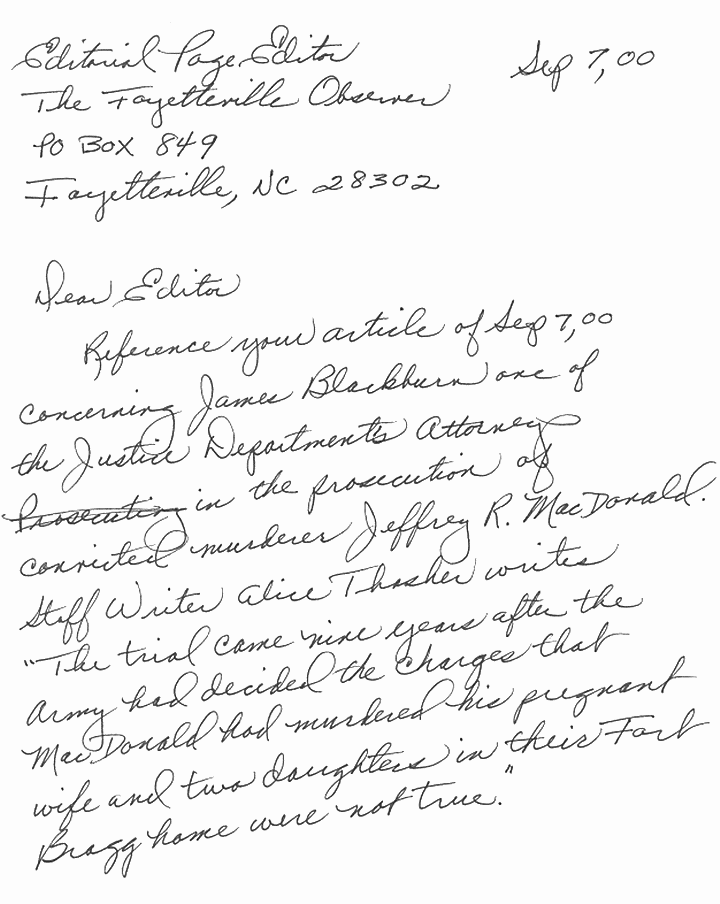 Editorial Page Editor
Sep 7,00
The Fayetteville Observer
PO BOX 849
Fayetteville, NC 28302
Dear Editor
Reference your article of Sep 7,00
concerning James Blackburn one of
the Justice Department's Attorneys
Prosecuting in the prosecution of
convicted murderer Jeffrey R. MacDonald.
Staff Writer Alice Thasher writes
"The trial came nine years after the
Army had decided the charges that
MacDonald had murdered his pregnant
wife and two daughters in their Fort
Bragg home were not true."